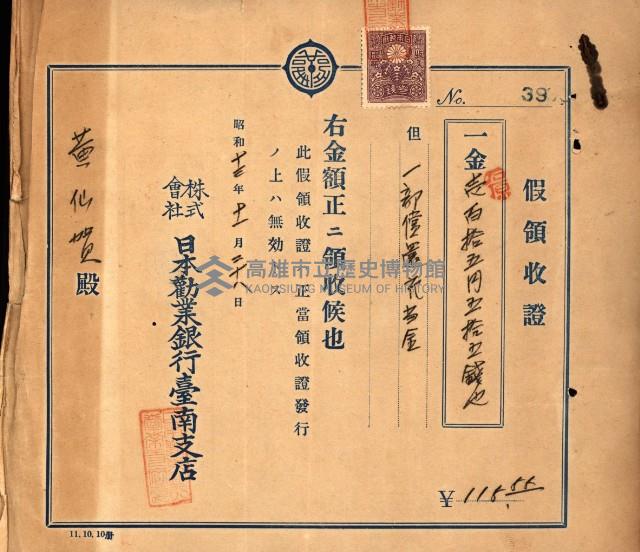 No. 39
假領收證
一金壱百拾五円五拾五錢也
¥ 115.55
但 一部償還
金
右金額正ニ領收候也
此假領收證ハ正當領收證發行
ノ上ハ無効トス
昭和十三年十一月二十八日
株式會社 日本勸業銀行臺南支店
黄仙賀殿
11.10.10册
高雄市立歷史博物館
KAOHSIUNG MUSEUM OF HISTORY